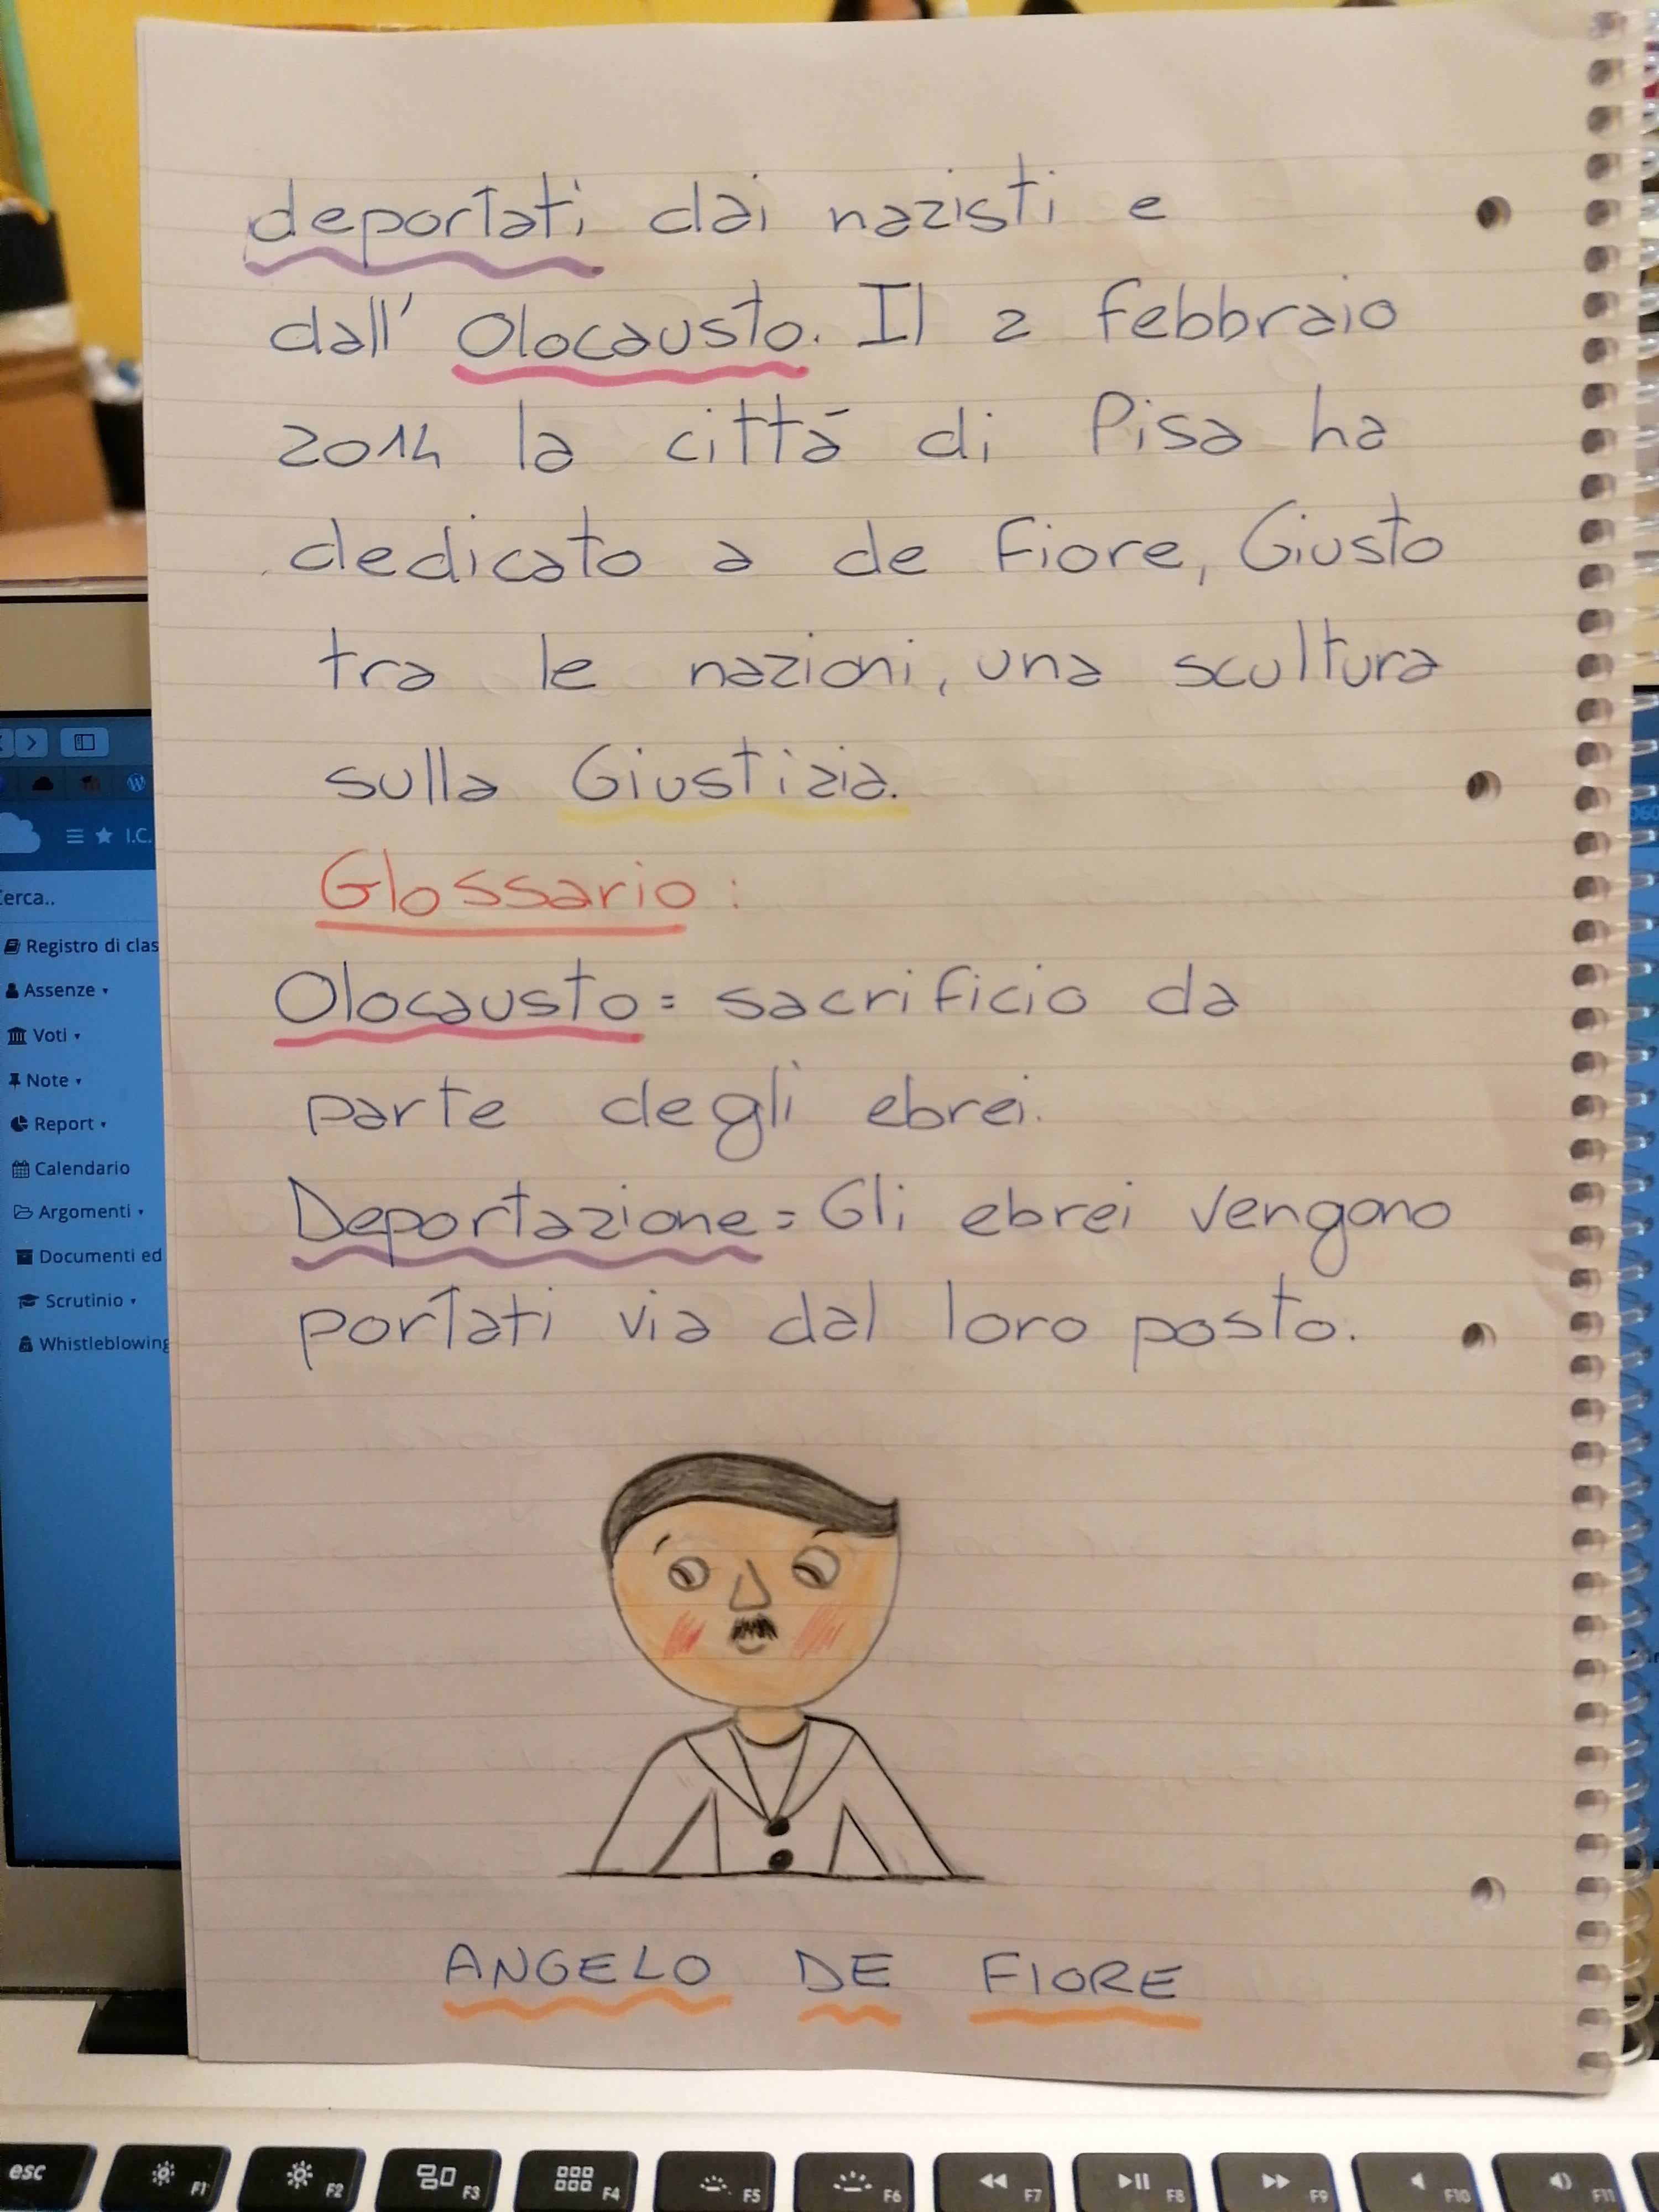 deportati dai nazisti e
dall' Olocausto. Il 2 febbraio
2014 la cittá di Pisa ha
dedicato a de Fiore, Giusto
tra le nazioni, una scultura
sulla Giustizia.
Glossario:
Olocausto = sacrificio da
parte degli ebrei.
Deportazione = Gli ebrei vengono
portati via dal loro posto.
ANGELO DE FIORE
I.C.
Cerca..
Registro di clas
Assenze
Voti
Note
Report
Calendario
Argomenti
Documenti ed
Scrutinio
Whistleblowing
esc
F1
F2
F3
F4
F5
F6
F7
F8
F9
F10
F11